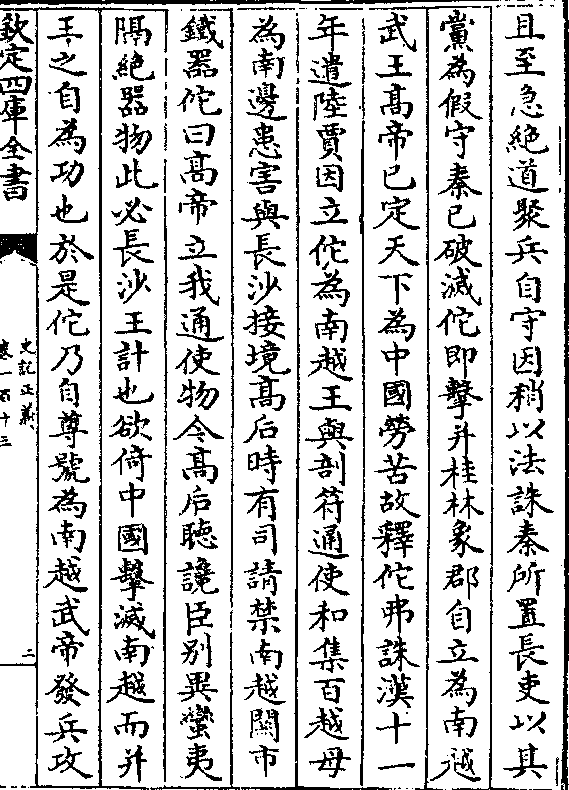 且至急絶道聚兵自守因稍以法誅秦所置長吏以其
黨為假守秦已破滅佗即擊并桂林象郡自立為南越
武王髙帝已定天下為中國勞苦故釋佗弗誅漢十一
年遣陸賈因立佗為南越王與剖符通使和集百越毋
為南邊患害與長沙接境髙后時有司請禁南越關市
鐵器佗曰髙帝立我通使物今髙后聽讒臣别異蠻夷
隔絶器物此必長沙王計也欲倚中國擊滅南越而并
王之自為功也於是佗乃自尊號為南越武帝發兵攻
欽定四庫全書
史記正義
卷一百十三
二